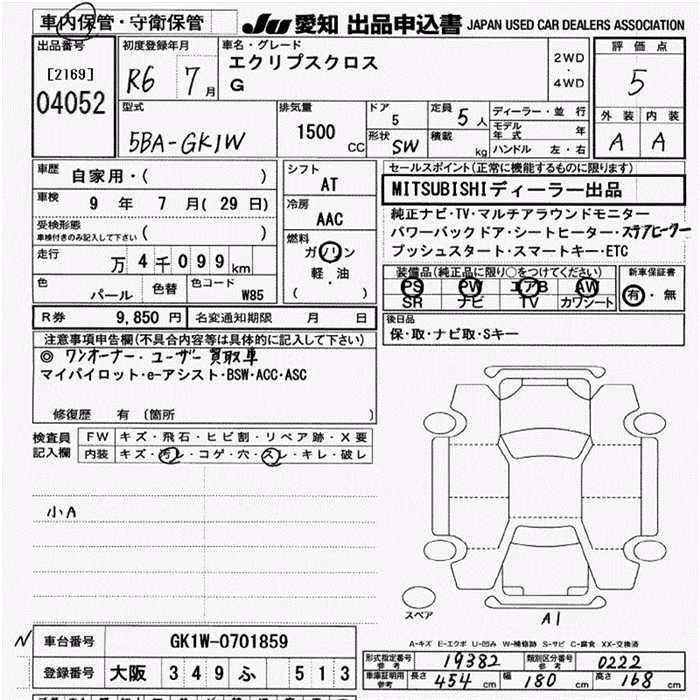 車内保管・守衛保管
JU 愛知 出品申込書 JAPAN USED CAR DEALERS ASSOCIATION
出品番号
[2169]
04052
初度登録年月
R6 7月
車名・グレード
エクリプスクロス
G
2WD
・
4WD
評価点
5
外装 内装
A A
型式
5BA-GK1W
排気量
1500 CC
ドア
5
形状 SW
定員 5人
積載 kg
ディーラー・並行
モデル年式 年
ハンドル 左・右
車歴 自家用・( )
車検 9年 7月(29日)
受検形態
車検付きのみ記入して下さい ( )
走行 万4千099km
色 パール
色替
色コード W85
シフト
AT
冷房
AAC
燃料
ガソリン
軽・油
( )
セールスポイント(正常に機能するものに限ります)
MITSUBISHIディーラー出品
純正ナビ・TV・マルチアラウンドモニター
パワーバックドア・シートヒーター・ステアヒーター
プッシュスタート・スマートキー・ETC
装備品(純正品に限り○をつけてください)
PS PW エアB AW
SR ナビ TV カワシート
新車保証書
有・無
R券 9,850円 名変通知期限 月 日
後日品
保・取・ナビ取・Sキー
注意事項申告欄(不具合内容等は具体的に記入して下さい)
◎ ワンオーナー・ユーザー買取車
マイパイロット・e-アシスト・BSW・ACC・ASC
修復歴 有(箇所 )
検査員
記入欄
FW キズ・飛石・ヒビ割・リペア跡・X要
内装 キズ・汚レ・コゲ・穴・スレ・キレ・破レ
小A
スペア
A1
A-キズ E-エクボ U-凹み W-補修跡 S-サビ C-腐食 XX-交換済
N
車台番号 GK1W-0701859
登録番号 大阪 349 ふ 513
形式指定番号
参考 19382
類別区分番号
参考 0222
車庫証明用
参考 長さ 454 cm 幅 180 cm 高さ 168 cm